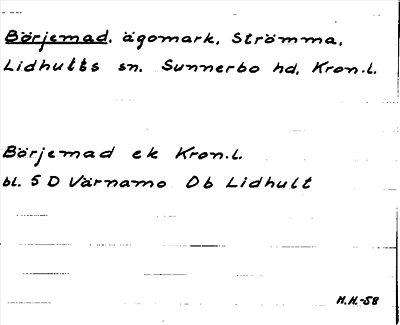 Börjemad. ägomark, Strömma,
Lidhults sn. Sunnerbo hd, Kron.l.
Börjemad ek Kron.l.
bl. 5 D Värnamo Ob Lidhult
H.H.-58